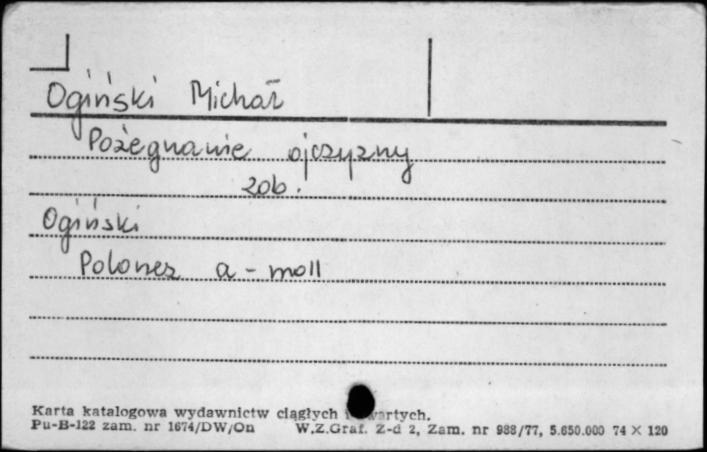 Ogiński Michał
Pożegnanie ojczyzny
zob.
Ogiński
Polonez a-moll
Karta katalogowa wydawnictw ciągłych i zwartych.
Pu-B-122 zam. nr 1674/DW/On W.Z.Graf. Z-d 2, Zam. nr 988/77, 5.650.000 74 × 120